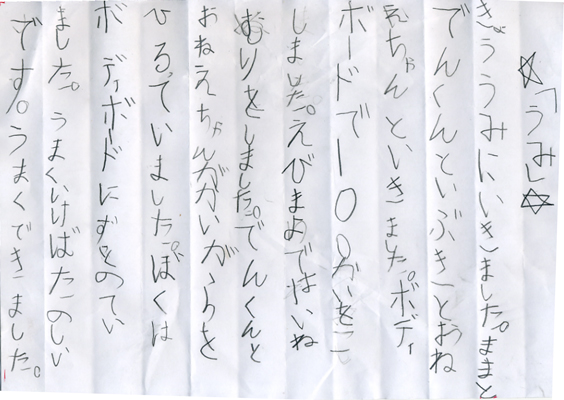 ☆「うみ」☆
きょううみにいきました。ままと
でんくんといぶきとおね
えちゃんといきました。ボディ
ボードで100かいをこ
しました。えびまよではいね
むりをしました。でんくんと
おねえちゃんがかいがらを
ひろっていました。ぼくは
ボディボードにずとのてい
ました。うまくいけばたのしい
です。うまくできました。